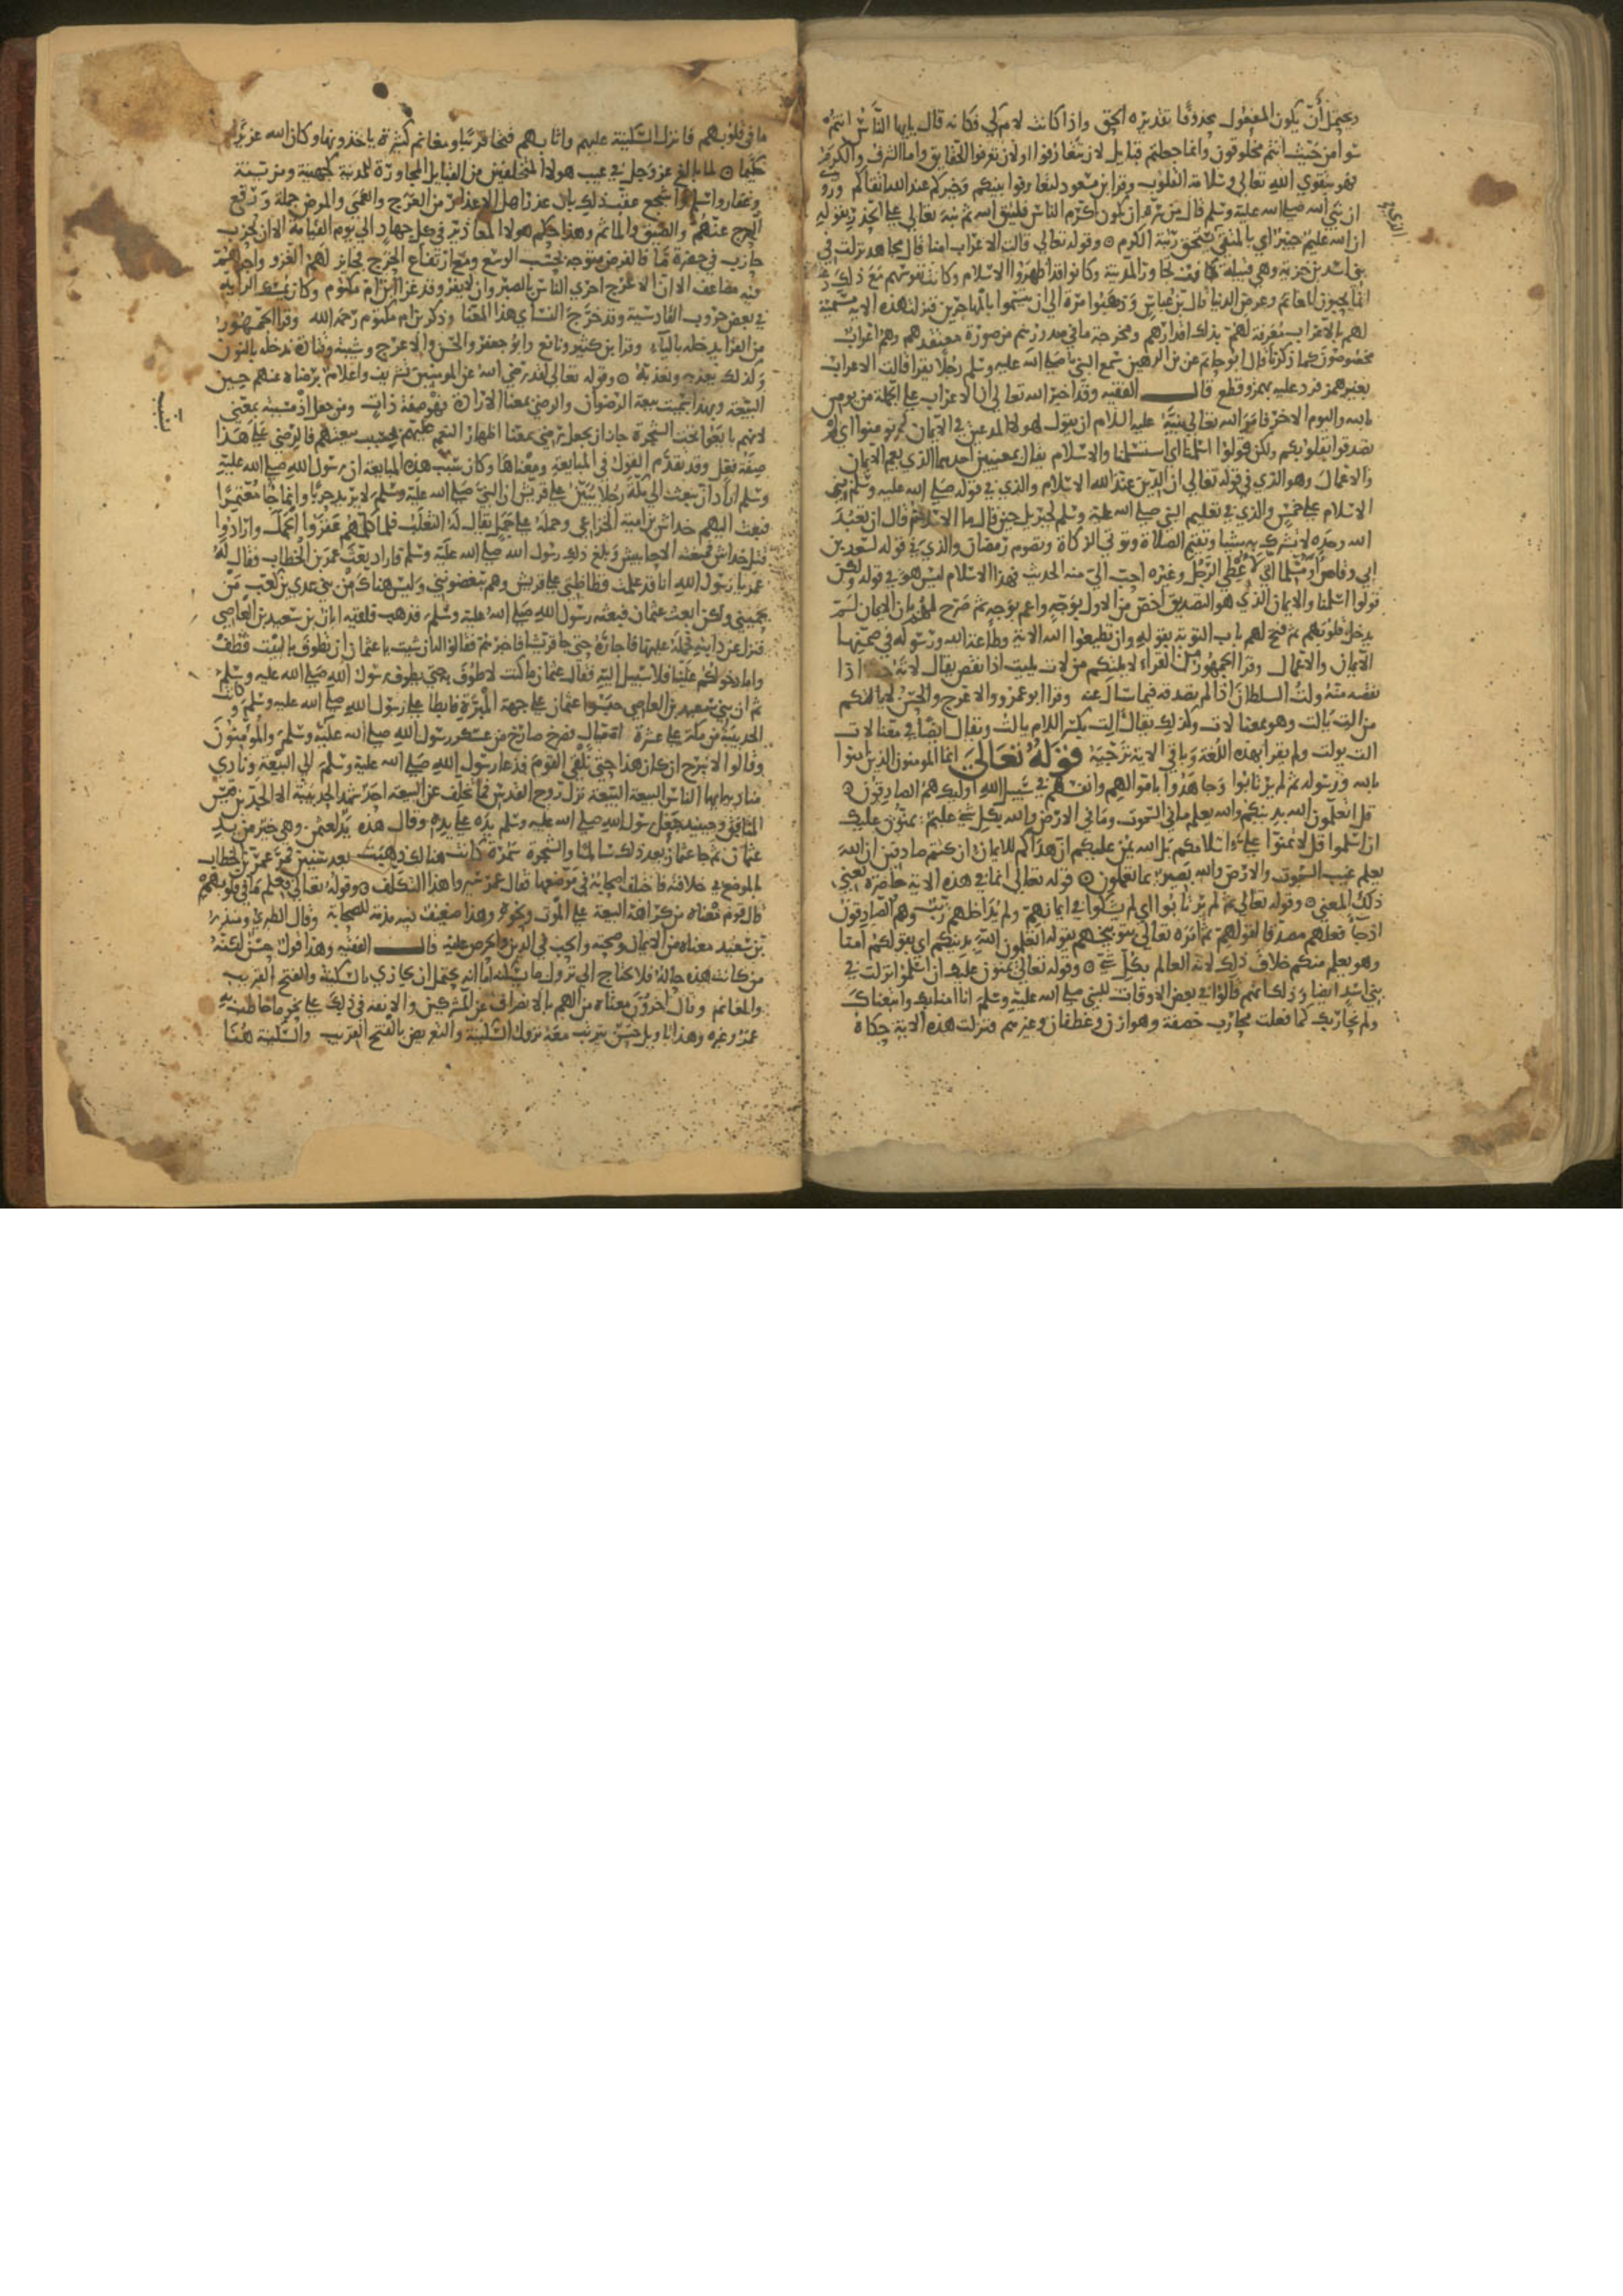 ويحتمل أن يكون المفعول محذوفا تقديره الحق واذا كانت لام كي فكانه قال يايها الناس انتم
سوا من حيث انتم مخلوقون وانما جعلتم قبايل لان تتعارفوا او لان تعرفوا الحقايق واما الشرف والكرم
فهو بتقوي الله تعالى وسلامة القلوب وقرا ابن مسعود لتعارفوا بينكم وخيركم عند الله اتقاكم وروي
ان نبي الله صلى الله عليه وسلم قال من سره ان يكون اكرم الناس فليتق الله ثم نبه تعالى على الحذر بقوله
ان الله عليم خبير اي بالمتقي يستحق رتبة الكرم وقوله تعالى قالت الاعراب امنا قال مجاهد نزلت في
بني اسد بن خزيمة وهي قبيلة كانت تجاور المدينة وكانوا قد اظهروا الاسلام وكانت نفوسهم مع ذلك
انما يحبون المغانم وعرض الدنيا قال ابن عباس وذهبوا مرة الى ان يتسموا بالمهاجرين فنزلت هذه الاية تسمية
لهم بالاعراب معرفة لهم بذلك اقدارهم ومخرجة ما في صدورهم من صورة معتقدهم وهم اعراب
مخصوصون كما ذكرنا قال ابو حاتم عن ابن الزهير سمع النبي صلى الله عليه وسلم رجلا يقرا قالت الاعراب
بغير همز فرد عليه بهمز وقطع قال الفقيه وقد اخبر الله تعالى ان الاعراب على الجملة من يومن
بالله واليوم الاخر فامر الله تعالى نبيه عليه السلام ان يقول لهولا المدعين في الايمان لم تومنوا اي لم
تصدقوا بقلوبكم ولكن قولوا اسلمنا اي استسلمنا والاسلام يقال بمعنيين احدهما الذي يعم الايمان
والاعمال وهو الذي في قوله تعالى ان الدين عند الله الاسلام والذي في قوله صلى الله عليه وسلم بني
الاسلام على خمس والذي في تعليم النبي صلى الله عليه وسلم لجبريل حين قال ما الاسلام قال ان تعبد
الله وحده لا تشرك به شيا وتقيم الصلاة وتوتي الزكاة وتصوم رمضان والذي في قوله لسعد بن
ابي وقاص او مسلما اني لاعطي الرجل وغيره احب الي منه الحديث فهذا الاسلام ليس هو في قوله ولكن
قولوا اسلمنا والايمان الذي هو التصديق اخص من الاول بوجه واعم بوجه ثم صرح لهم بان الايمان لم
يدخل قلوبهم ثم فتح لهم باب التوبة بقوله وان تطيعوا الله الاية وطاعة الله ورسوله في ضمنها
الايمان والاعمال وقرا الجمهور من القراء لا يلتكم من لات يليت اذا نقص يقال لاته حقه اذا
نقصه منه ولت السلطان اذا لم يصدقه فيما سال عنه وقرا ابو عمرو والاعرج والحسن لا يالتكم
من الت يالت وهو بمعنا لات وكذلك يقال الت بكسر اللام يالت ويقال ايضا في معنا لات
الت يولت ولم يقرا بهذه اللغة وباقي الاية ترجية قوله تعالى انما المومنون الذين امنوا
بالله ورسوله ثم لم يرتابوا وجاهدوا باموالهم وانفسهم في سبيل الله اوليك هم الصادقون
قل اتعلمون الله بدينكم والله يعلم ما في السموات وما في الارض والله بكل شي عليم يمنون عليك
ان اسلموا قل لا تمنوا علي اسلامكم بل الله يمن عليكم ان هداكم للايمان ان كنتم صادقين ان الله
يعلم غيب السموات والارض والله بصير بما تعملون قوله تعالى انما في هذه الاية حاصرة يعني
ذلك المعنى وقوله تعالى ثم لم يرتابوا اي لم يشكوا في ايمانهم ولم يداخلهم ريب وهم الصادقون
اذ جا فعلهم مصدقا لقولهم ثم امره تعالى بتوبيخهم بقوله اتعلمون الله بدينكم اي بقولكم امنا
وهو يعلم منكم خلاف ذلك لانه العالم بكل شي وقوله تعالى يمنون عليك ان اسلموا نزلت في
بني اسد ايضا وذلك انهم قالوا في بعض الاوقات للنبي صلى الله عليه وسلم انا امنا بك واتبعناك
ولم نحاربك كما فعلت محارب خصفة وهوازن وغطفان وغيرهم فنزلت هذه الاية حكاه
ما في قلوبهم فانزل السكينة عليهم واثابهم فتحا قريبا ومغانم كثيرة ياخذونها وكان الله عزيزا
حكيما لما بالغ عز وجل في عيب هولا المتخلفين من القبايل المجاورة للمدينة كجهينة ومزينة
وغفار واسلم واشجع عقب ذلك بان عذر اهل الاعذار من العرج والعمى والمرض جملة ورفع
الحرج عنهم والضيق والماثم وهذا حكم هولا المعاذير في كل جهاد الى يوم القيامة الا ان يحزب
حازب في حضرة ما فالفرض متوجه بحسب الوسع ومع ارتفاع الحرج فجايز لهم الغزو واجرهم
فيه مضاعف الا ان الاعرج احرى الناس بالصبر وان لا يفر وقد غزا ابن ام مكتوم وكان يمسك الراية
في بعض حروب القادسية وقد خرج النساي هذا المعنا وذكر بن ام مكتوم رحمه الله وقرا الجمهور
من القرا يدخله بالياء وقرا ابن كثير ونافع وابو جعفر والحسن والاعرج وشيبة وقتادة ندخله بالنون
وكذلك يعذبه ونعذبه وقوله تعالى لقد رضي الله عن المومنين تشريف واعلام برضاه عنهم حين
البيعة وبهذا سميت بيعة الرضوان والرضى بمعنا الارادة فهو صفة ذات ومن جعل اذ مسببة بمعنى
لانهم بايعوا تحت الشجرة جاز ان يجعل رضي بمعنا اظهار النعم عليهم بسبب بيعتهم فالرضى على هذا
صفة فعل وقد تقدم القول في المبايعة ومعناها وكان سبب هذه المبايعة ان رسول الله صلى الله عليه
وسلم اراد ان يبعث الى مكة رجلا يبين على قريش ان النبي صلى الله عليه وسلم لا يريد حربا وانما جا معتمرا
فبعث اليهم خداش بن امية الخزاعي وحمله على جمل يقال له الثعلب فلما كلمهم عقروا الجمل وارادوا
قتل خداش فمنعته الاحابيش وبلغ ذلك رسول الله صلى الله عليه وسلم فاراد بعث عمر بن الخطاب فقال له
عمر يا رسول الله انا قد علمت فظاظتي على قريش وهم يبغضونني وليس هناك من بني عدي بن كعب من
يحميني ولكن ابعث عثمان فبعثه رسول الله صلى الله عليه وسلم فذهب فلقيه ابان بن سعيد بن العاصي
فنزل عن دابته فحمله عليها فاجاره حتى جا قريشا فاخبرهم فقالوا له ان شيت يا عثمان ان تطوف بالبيت فطف
واما دخولكم علينا فلا سبيل اليه فقال عثمان ما كنت لاطوف حتى يطوف رسول الله صلى الله عليه وسلم
ثم ان بني سعيد بن العاصي حبسوا عثمان على جهة المبرة فابطا على رسول الله صلى الله عليه وسلم وكانت
الحديبية من مكة على عشرة اميال فصرخ صارخ من عسكر رسول الله صلى الله عليه وسلم والمومنون
وقالوا لا نبرح ان كان هذا حتى نلقى القوم فدعا رسول الله صلى الله عليه وسلم الى البيعة ونادى
مناديه ايها الناس البيعة البيعة نزل روح القدس فما تخلف عن البيعة احد شهد الحديبية الا الجد بن قيس
المنافق وحينيذ جعل رسول الله صلى الله عليه وسلم يده على يده وقال هذه يد لعثمن وهي خير من يد
عثمان ثم جا عثمان بعد ذلك سالما والشجرة سمرة كانت هنالك ذهبت بعد سنين فمر عمر بن الخطاب
بالموضع في خلافته فاختلف اصحابه في موضعها فقال عمر سيروا هذا التكلف وقوله تعالى فعلم ما في قلوبهم
قال قوم معناه من كراهة البيعة على الموت ونحوه وهذا ضعيف فيه مذمة للصحابة وقال الطبري ومنذر
بن سعيد معناه من الايمان وصحته والحب في الدين والحرص عليه قال الفقيه وهذا قول حسن لكنه
من كانت هذه حاله فلا يحتاج الى نزول ما يسكنه اما انه يحتمل ان يجازي بالسكينة والفتح القريب
والمغانم وقال اخرون معناه من الهم بالانصراف عن المشركين والانفة في ذلك على نحو ما خاطب فيه
عمر وغيره وهذا تاويل حسن يترتب معه نزول السكينة والتعويض بالفتح القريب والسكينة هنا